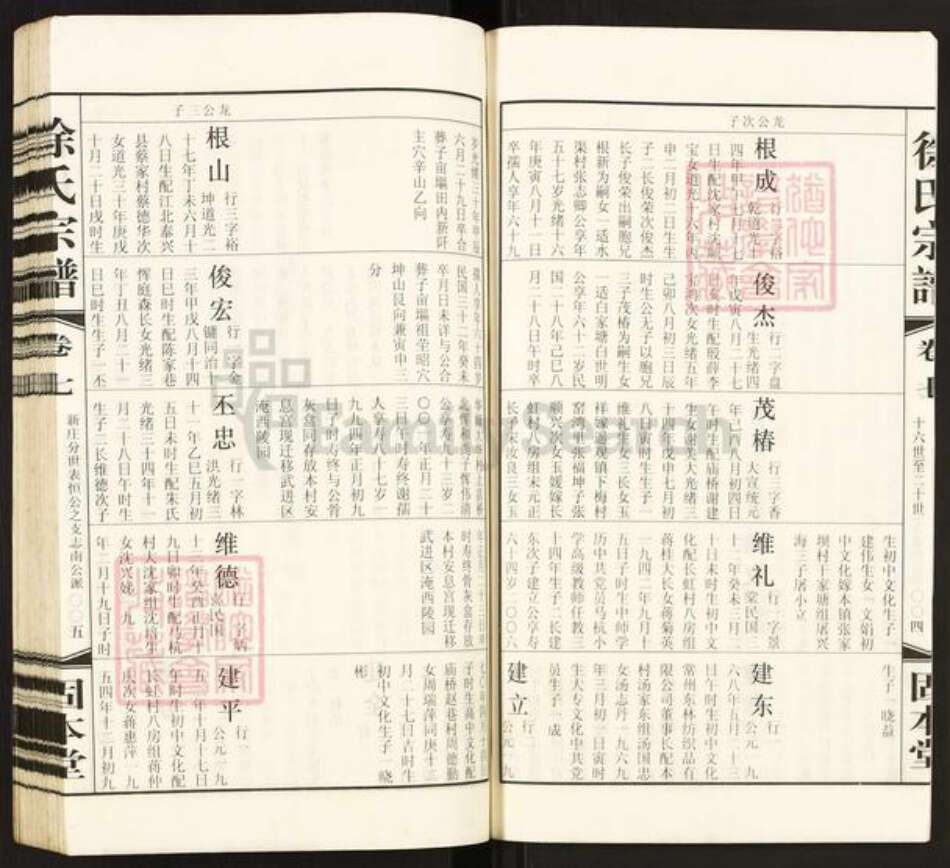 徐氏宗譜
卷七
十六世至二十世
四
固本堂
龙公次子
根成
行二字裕
乾道光十
宝女道光十六年丙
申二月初三日生生
子二长俊荣次俊杰
长子俊荣出嗣胞兄
根新为嗣女一适水
渠村张志卿公享年
五十七岁光绪十六
年庚寅八月十一日
卒孺人享年六十九
俊杰
行二字盘
生光绪四
年戊寅八月二十七
日亥时生配殷薛李
己卯八月初三日辰
时生公无子以胞兄
三子茂椿为嗣生女
一适白家塘白世明
公享年六十一岁民
国二十八年己巳八
月二十八日午时卒
茂椿
行三字香
大宣统元
年己酉八月初四日
午时生配庙桥谢建
生女谢美大光绪三
十四年戊申七月初
八寅时生生子一
维礼生女三长女玉
样嫁道观镇下梅村
窑湾里张福坤子张
顺兴次女玉媛嫁长
虹村八房组宋元正
长子宋汝良三女玉
维礼
行一字景
梁民国三
十二年癸未三月二
十日未时生初中文
化配长虹村八房组
蒋桂大长女蒋菊英
一九四二年九月十
五日子时生中师学
历中共党员马杭小
学高级教师任教三
十四年生子二长建
东次子建立公享寿
六十四岁二〇〇六
建东
行一
公元一九
六八年五月二十三
日午时生初中文化
常州东林纺织品有
限公司董事长配本
村汤家东组汤国忠
女汤志丹一九六九
年三月初一日寅时
生大专文化中共党
员生子一成
建立
行二
公元一九
生初中文化生子一
建伟生女一文娟初
中文化嫁本镇张家
坝村王家塘组屠兴
海三子屠小立
生子一晓益
岁光绪三十年甲辰
六月二十九日卒合
葬子亩塥田内新阡
主穴辛山乙向
民国三十二年癸未
卒月日未详与公合
葬子亩塥祖茔昭穴
坤山艮向兼寅申三
分
公享寿九十三岁二
〇〇一年正月二十
三日午时寿终谢孺
人享寿八十七岁一
九九四年正月初九
日子时寿终与公骨
灰盒同存放本村安
息宫现迁移武进区
淹西陵园
时寿终骨灰盒存放
本村安息宫现迁移
武进区淹西陵园
子时生高中文化配
庙桥赵巷村周德勤
女周瑞萍同庚十二
月二十七日吉时生
初中文化生子一晓
彬
龙公三子
根山
行三字裕
坤道光二
十七年丁未六月十
八日生配江北泰兴
县蔡家村蔡德华次
女道光三十年庚戌
十月二十日戌时生
俊宏
行一字金
镛同治十
三年甲戌八月十四
日巳时生配陈家巷
恽庭森长女光绪三
年丁丑八月二十一
日巳时生生子一丕
丕忠
行一字林
洪光绪三
十一年乙巳五月初
五日未时生配朱氏
光绪三十四年十一
月二十八日午时生
生子二长维德次子
维德
行一字炳
十二年癸酉正月十
九日卯时生配马杭
村大沈家组沈培生
女沈兴娣一九
年二月十九日子时
建平
行一
公元一九
五一年十月十七日
午时生初中文化配
长虹村八房组蒋仲
庆次女蒋惠萍一九
五四年十二月初九
徐氏宗譜
卷七
新庄分世表恒公之支志南公派
〇〇五
固本堂
FamilySearch